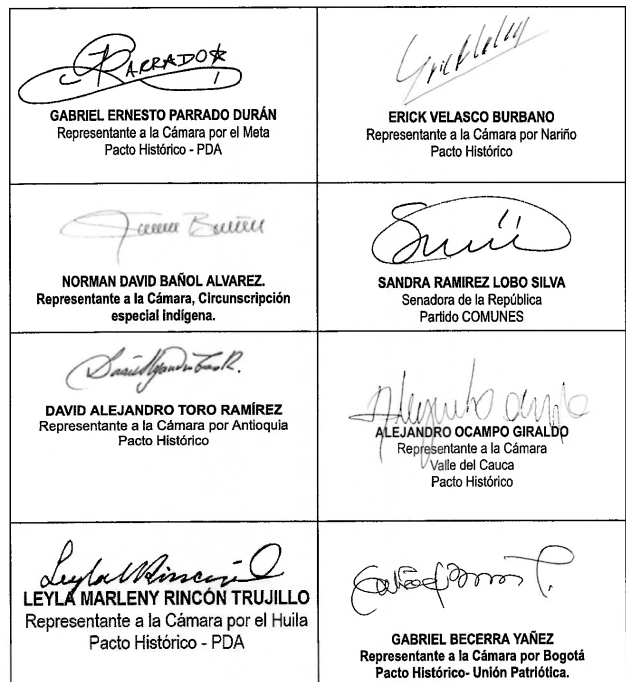 PARRADO
GABRIEL ERNESTO PARRADO DURÁN
Representante a la Cámara por el Meta
Pacto Histórico - PDA
ERICK VELASCO BURBANO
Representante a la Cámara por Nariño
Pacto Histórico
NORMAN DAVID BAÑOL ALVAREZ.
Representante a la Cámara, Circunscripción
especial Indígena.
SANDRA RAMIREZ LOBO SILVA
Senadora de la República
Partido COMUNES
DAVID ALEJANDRO TORO RAMÍREZ
Representante a la Cámara por Antioquia
Pacto Histórico
Alejandro Ocampo
ALEJANDRO OCAMPO GIRALDO
Representante a la Cámara
Valle del Cauca
Pacto Histórico
Leyla Rincón
LEYLA MARLENY RINCÓN TRUJILLO
Representante a la Cámara por el Huila
Pacto Histórico - PDA
GABRIEL BECERRA YAÑEZ
Representante a la Cámara por Bogotá
Pacto Histórico- Unión Patriótica.